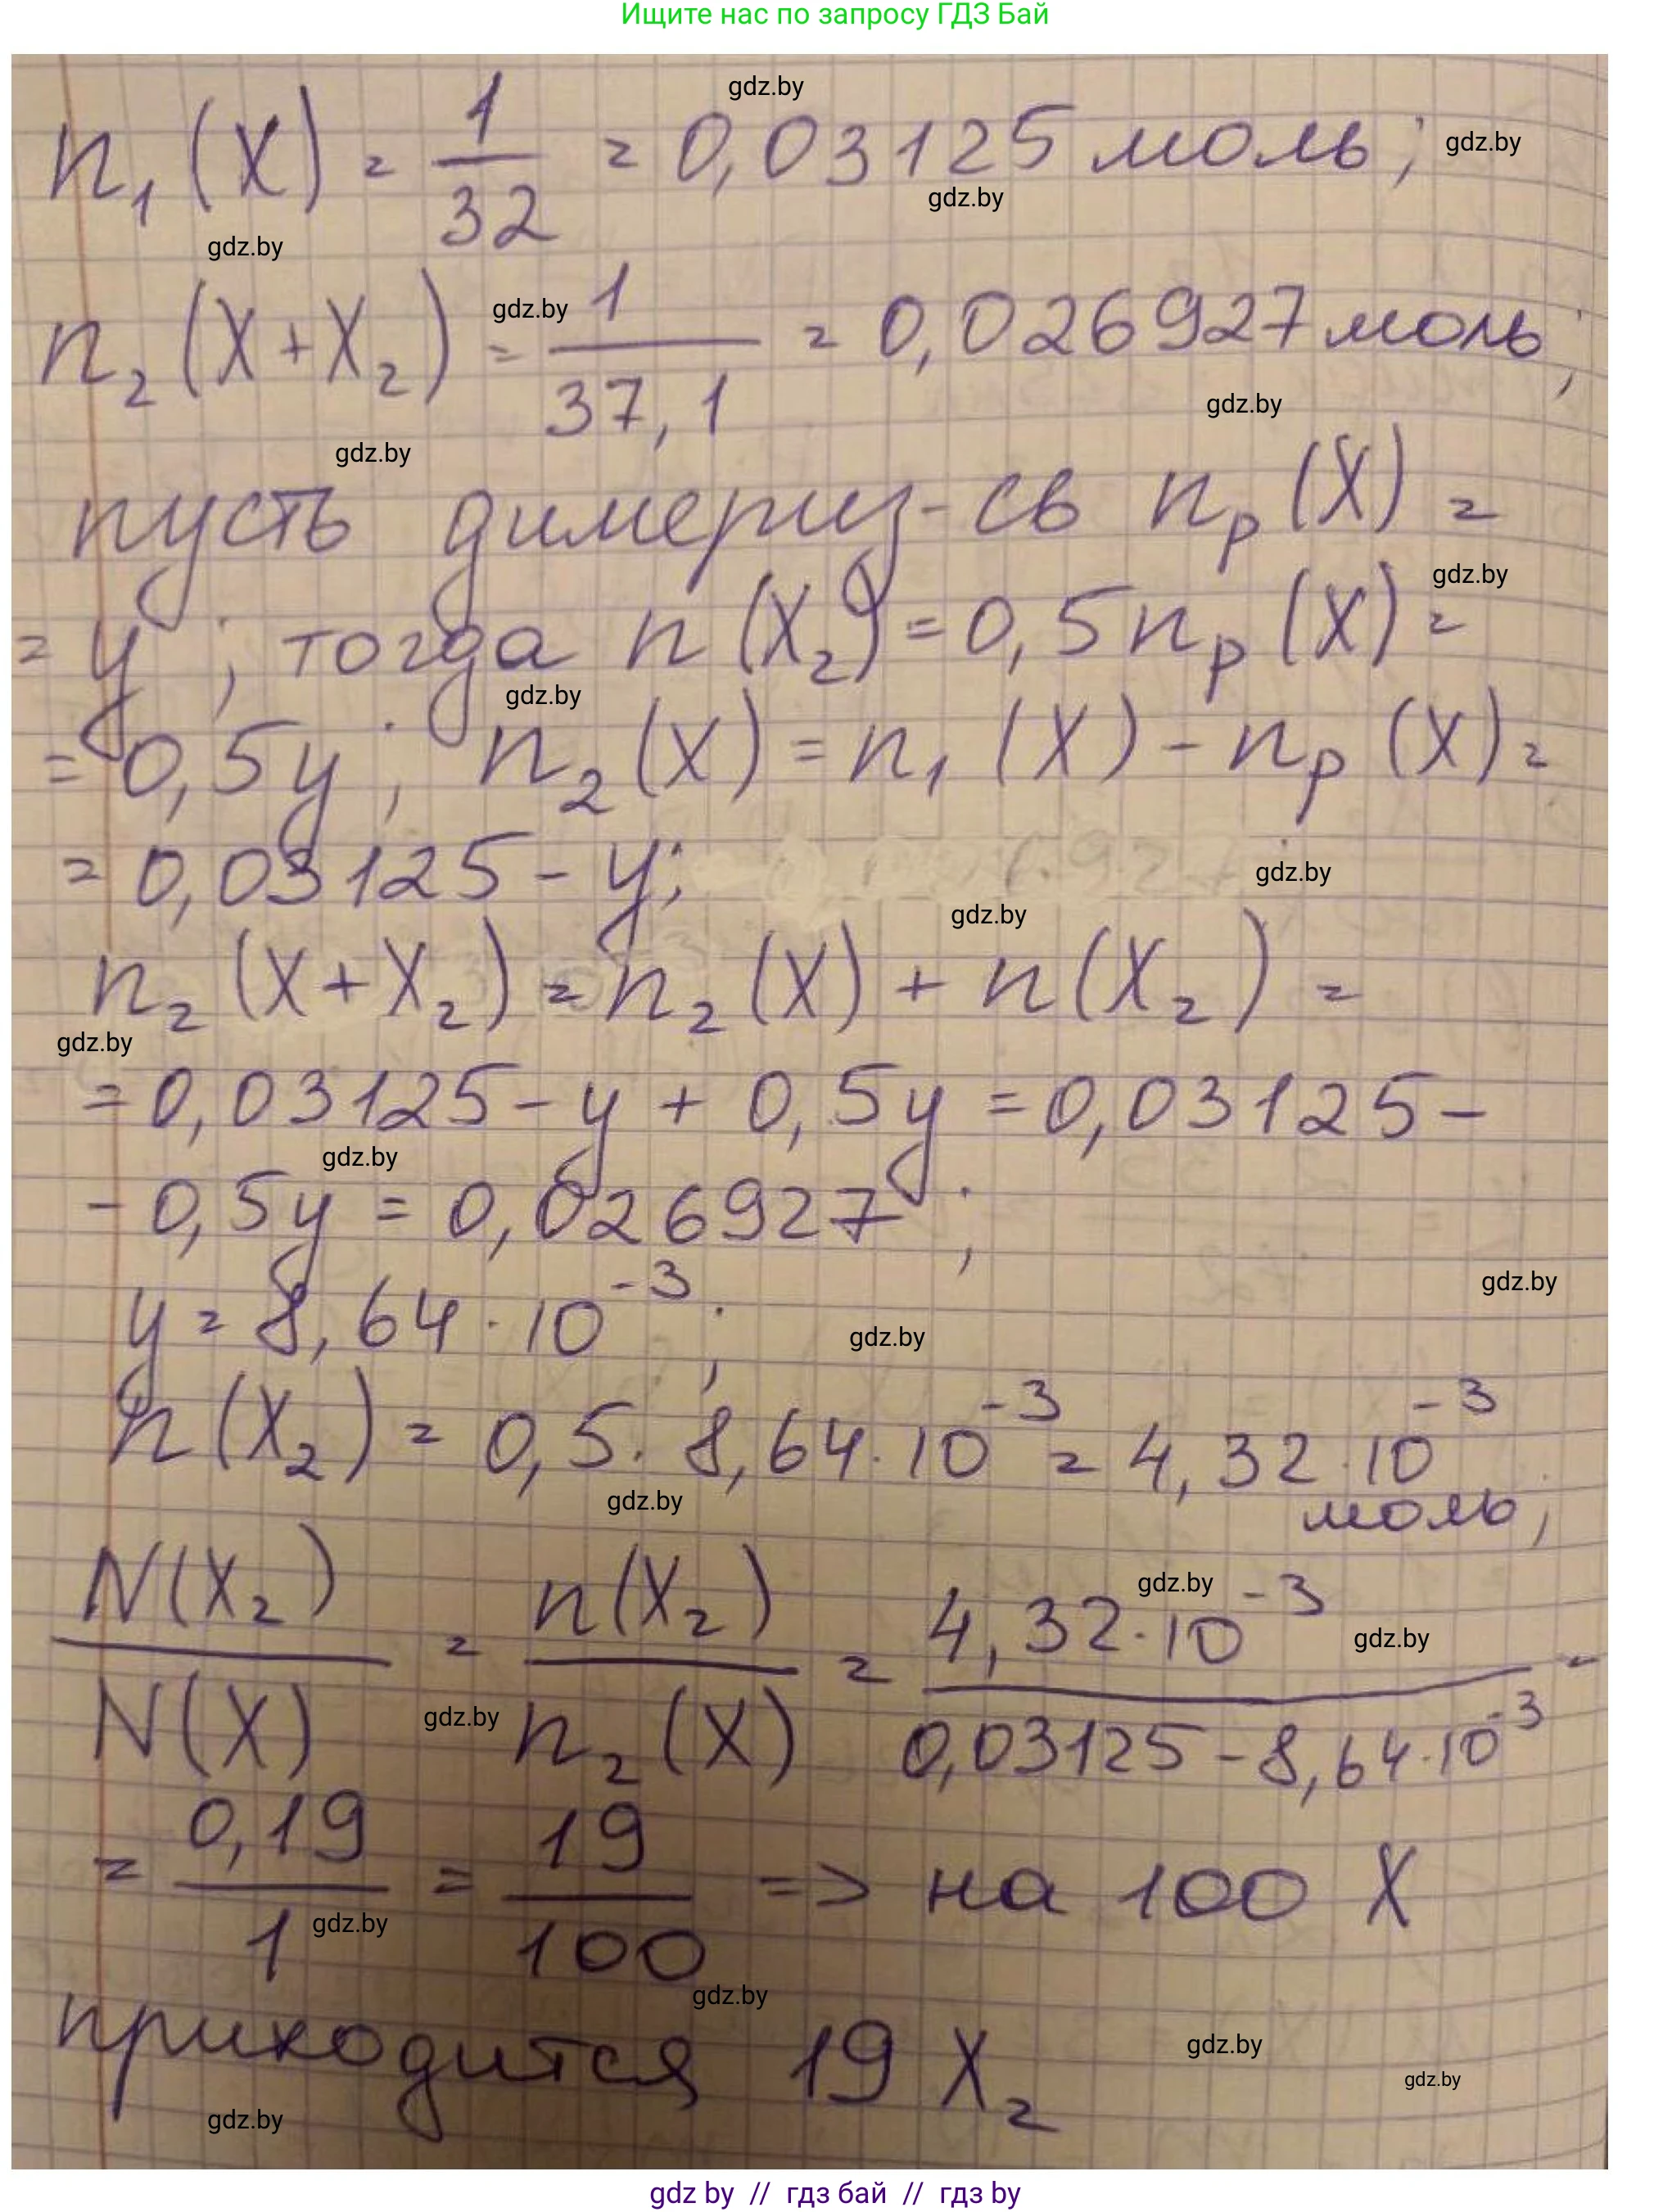 Ищите нас по запросу ГДЗ Бай
gdz.by
n₁(X) = 1/32 = 0,03125 моль;
gdz.by
gdz.by
gdz.by
n₂(X+X₂) = 1/37,1 = 0,026927 моль;
gdz.by
gdz.by
gdz.by
пусть димериз-св nₚ(X) =
gdz.by
= y; тогда n(X₂) = 0,5nₚ(X) =
gdz.by
= 0,5y; n₂(X) = n₁(X) - nₚ(X) =
= 0,03125 - y;
gdz.by
gdz.by
n₂(X+X₂) = n₂(X) + n(X₂) =
gdz.by
= 0,03125 - y + 0,5y = 0,03125 -
gdz.by
- 0,5y = 0,026927;
gdz.by
y = 8,64·10⁻³;
gdz.by
n(X₂) = 0,5·8,64·10⁻³ = 4,32·10⁻³
моль;
gdz.by
N(X₂)/N(X) = n(X₂)/n₂(X) = 4,32·10⁻³/0,03125-8,64·10⁻³ =
gdz.by
gdz.by
gdz.by
= 0,19/1 = 19/100 => на 100 X
gdz.by
gdz.by
приходится 19 X₂
gdz.by
gdz.by
gdz.by
gdz by // гдз бай // гдз by